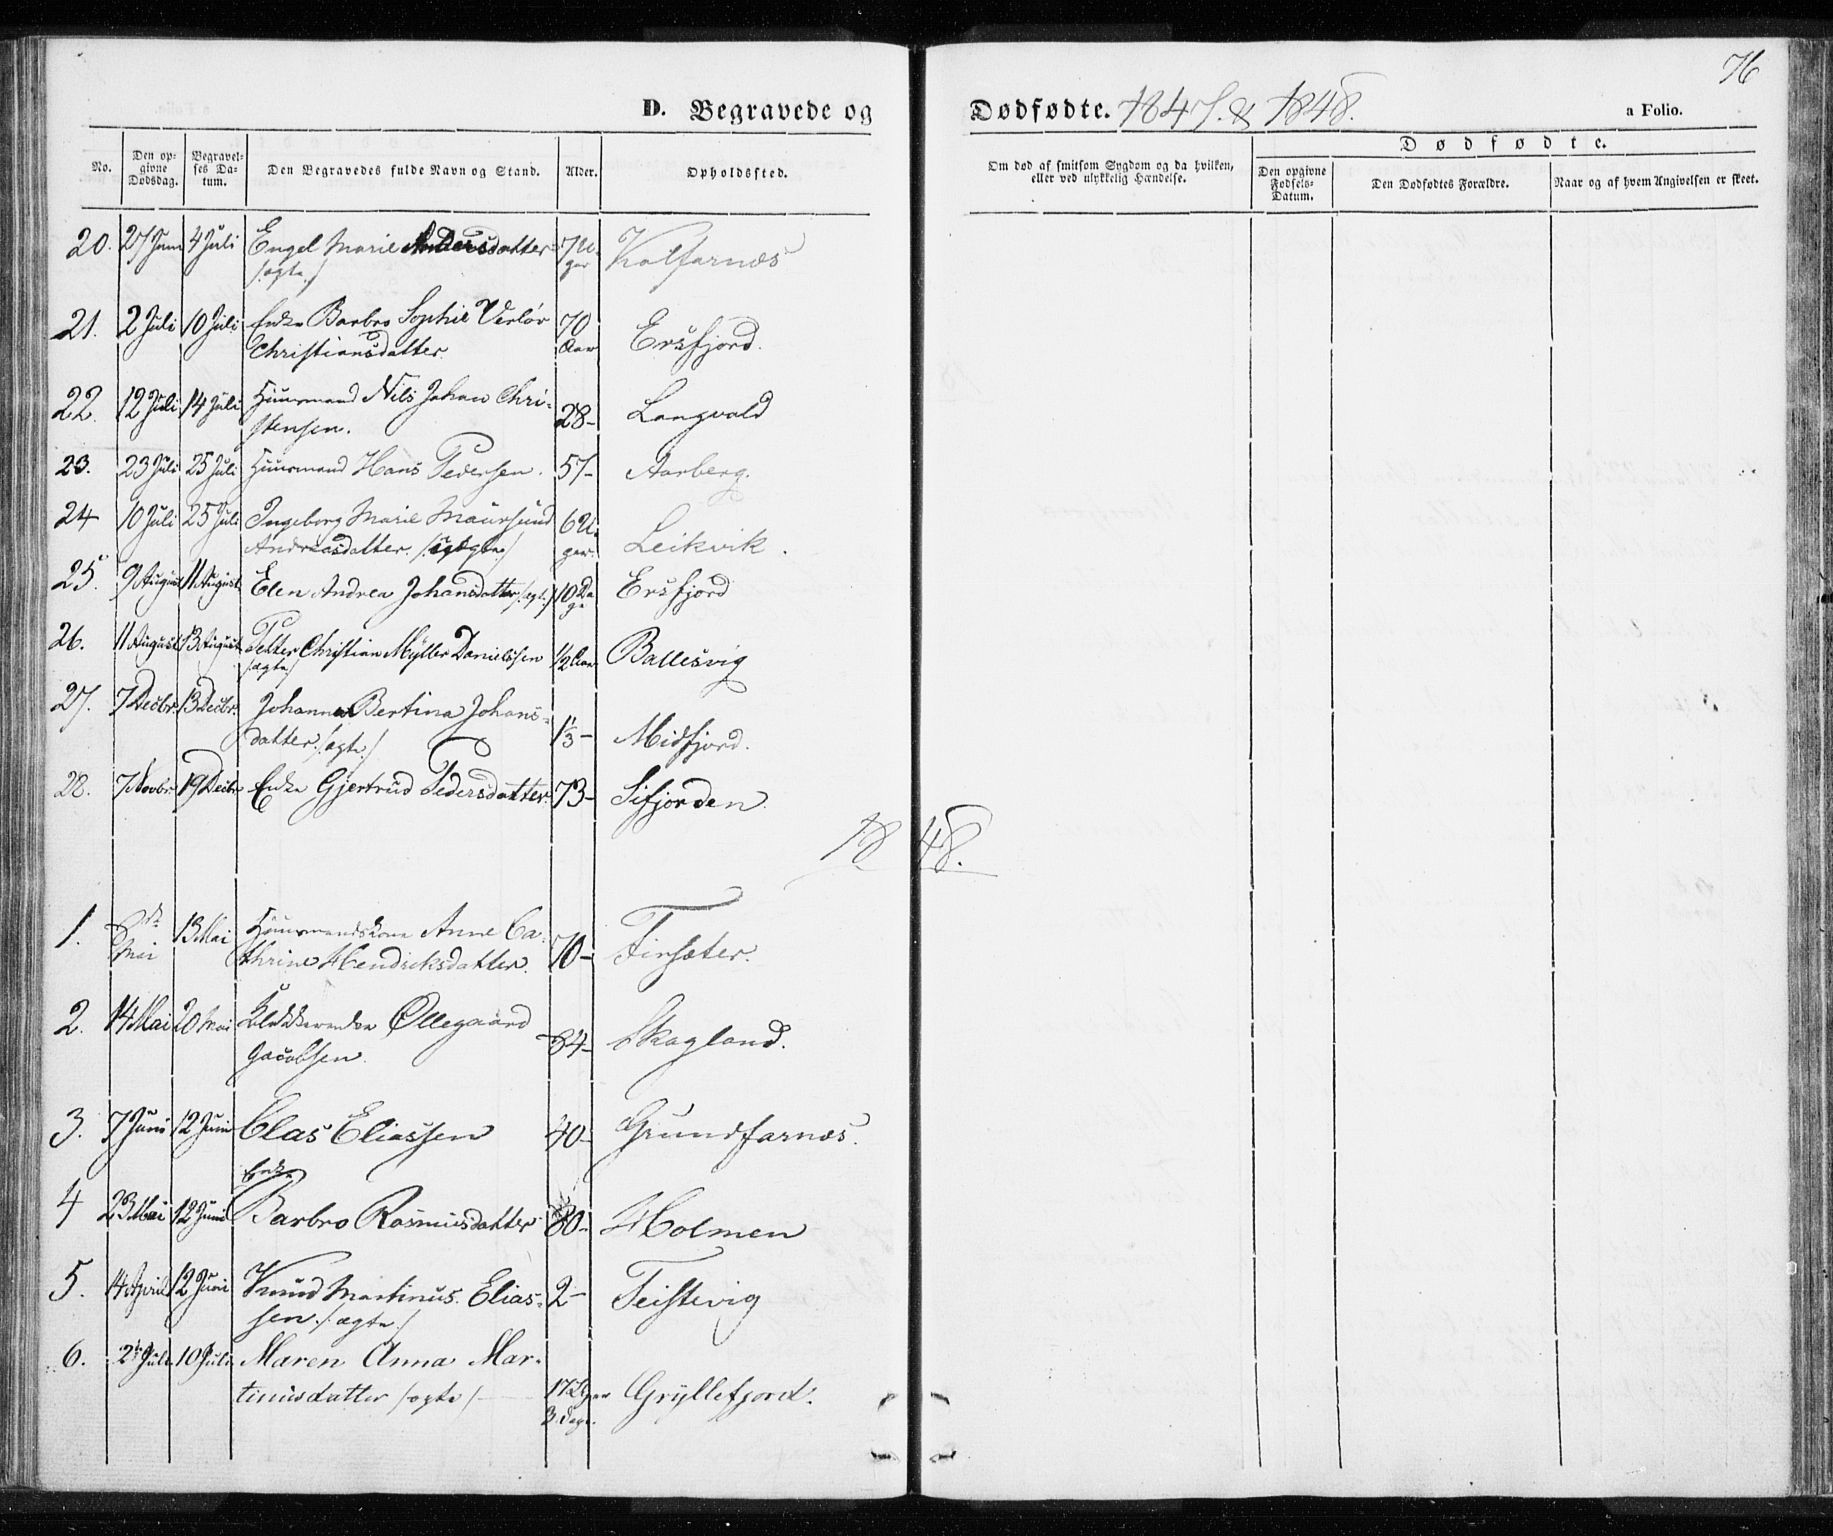 76
D. Begravede og Dødfødte. 1847. & 1848. a Folio.
No.
Den op-
givne
Dødsdag.
Begravel-
ses Da-
tum.
Den Begravedes fulde Navn og Stand.
Alder.
Opholdssted.
Om død af smitsom Sygdom og da hvilken,
eller ved ulykkelig Hændelse.
Dødfødte.
Den opgivne
Fødsels-
Datum.
Den Dødfødtes Forældre.
Naar og af hvem Angivelsen er skeet.
20. 27 Juni 4 Juli Engel Marie Andersdatter 7 U-
/:ægte:/ ger Kalfarnæs
21. 2 Juli 10 Juli Enke Barbro Sophie Verløv 70
Christiansdatter. Aar Ersfjord.
22. 12 Juli 14 Juli Huusmand Nils Johan Chri-
stensen. 28- Langvald
23. 23 Juli 25 Juli Huusmand Hans Pedersen. 57- Aarberg.
24 10 Juli 25 Juli Ingeborg Marie Maursund 6 U-
Andreasdatter. /:uægte:/ ger. Leikvik.
25. 9 August 11 August Elen Andrea Johansdatter /:ægt:/ 10 Da Ersfjord
ge
26. 11 August 13 August Petter Christian Myller Danielssen 1/2 Aar Ballesvig
/ægte/
27. 7 Decbr. 13 Decbr. Johanna Bertina Johans-
datter /:ægte:/ 1 1/3- Midfjord.
28. 7 Novbr. 19 Decbr Enke Gjertrud Pedersdatter. 73- Sifjorden.
1848.
1. Mai 13 Mai Huusmandskone Anne Ca-
thrine Hendriksdatter. 70- Finsæter.
2. 14 Mai 20 Mai Klokkerenke Øllegaard
Jacobsen. 84- Skagland.
3. 7 Juni 12 Juni Clas Eliassen 40- Grundfarnæs.
Enke
4 23 Mai 12 Juni Barbro Rasmusdatter 80- Holmen
5. 14 April 12 Juni Knud Martinus Elias-
sen /:ægte:/ 2- Teistevig
6. 2 Juli 10 Juli Maren Anna Mar-
tinusdatter /ægte/ 17 Uger Gryllefjord.
3 Dage.